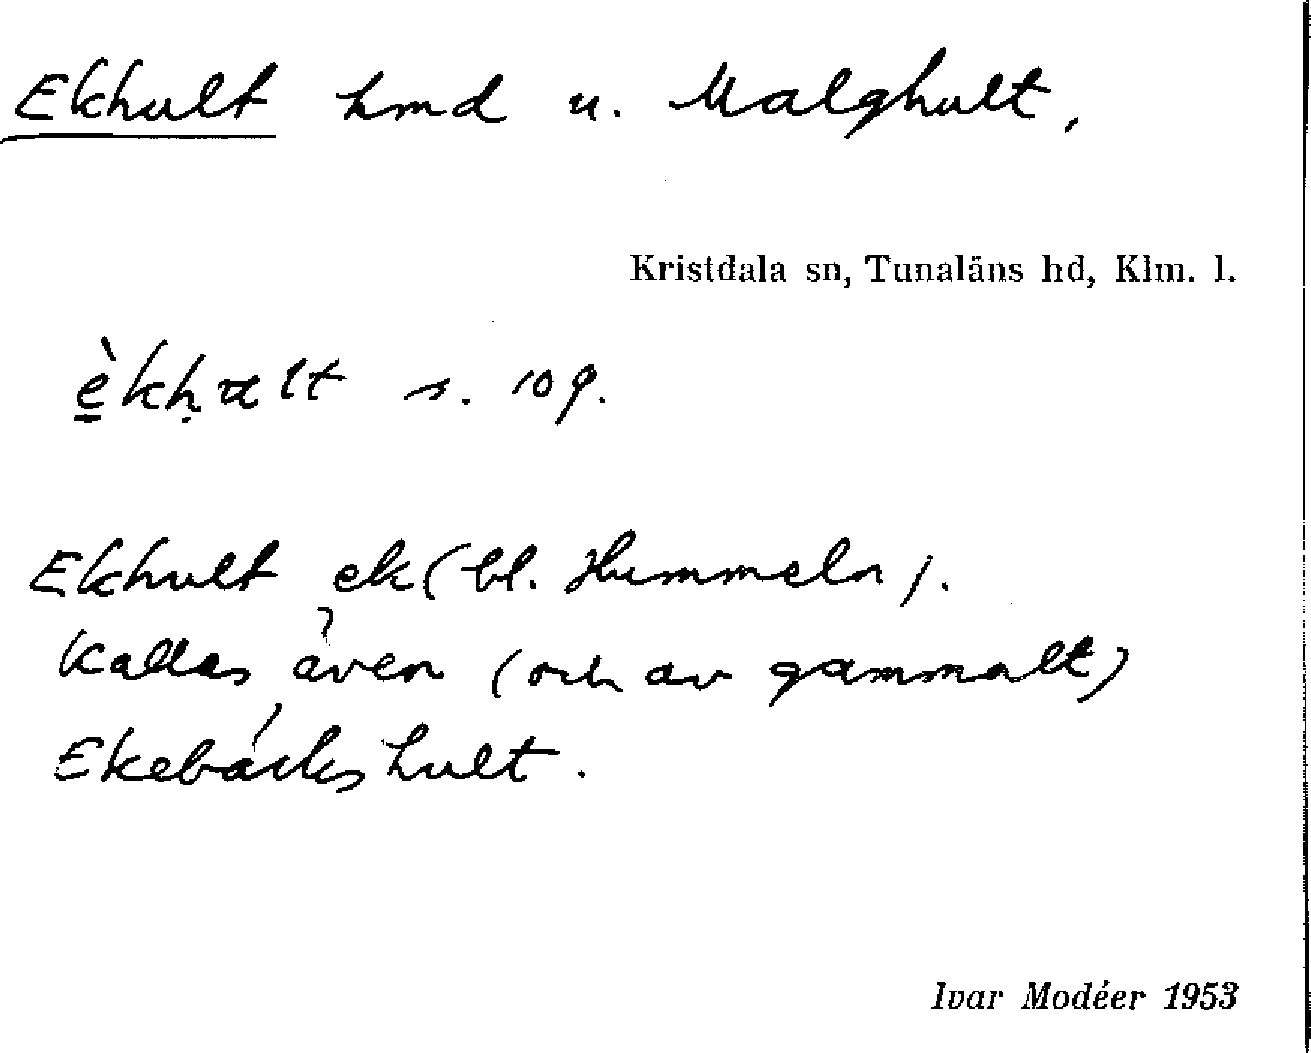 Ekhult hmd u. Malghult,
Kristdala sn, Tunaläns hd, Klm. l.
s. 109.
Ekhult ek (bl. Hummeln).
Kallas även (och av gammalt)
Ekebäckshult.
Ivar Modéer 1953